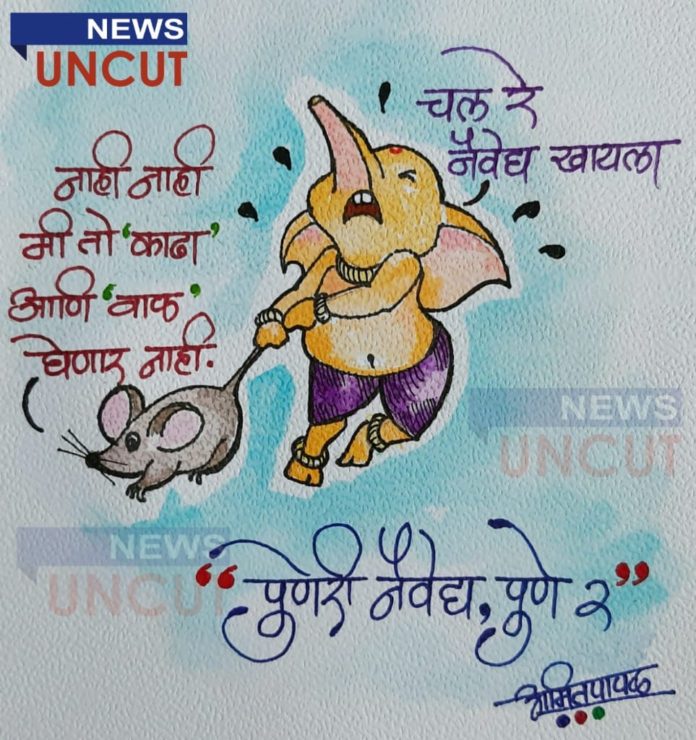 NEWS
UNCUT
चल रे
नैवेद्य खायला
नाही नाही
मी तो 'काढा'
आणि 'वाफ'
घेणार नाही.
NEWS
UNCUT
NEWS
UNCUT
"पुणेरी नैवेद्य, पुणे २"
अमित पापळ